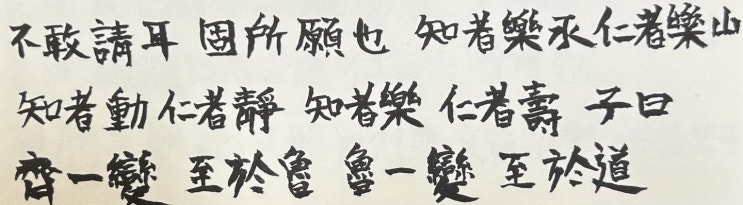 不敢請耳 固所願也 知者樂水仁者樂山
知者動仁者靜 知者樂 仁者壽 子曰
齊一變 至於魯 魯一變 至於道